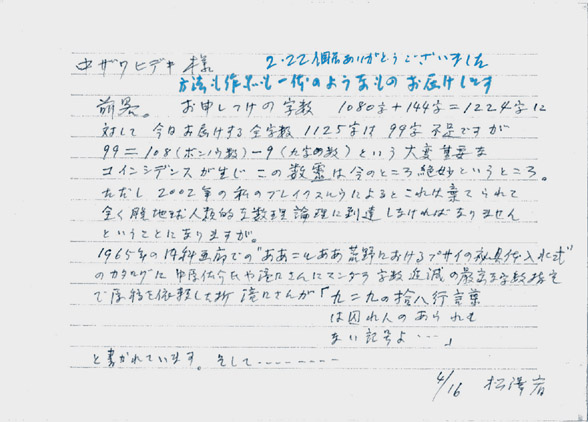 中ザワヒデキ 様
2.22個展ありがとうございました
方法も作品も一体のようなもの お届けします
前略。 お申しつけの字数 1080字+144字=1224字に
対して 今日お届けする全字数 1125字は 99字 不足ですが
99=108(ボンノウ数)-9(九字の数)という 大変 重要な
コインシデンスが生じ この数霊は今のところ絶妙というところ。
ただし 2002年の私のブレイクスルウによるとこれは棄てられて
全く脱地球人類的な数理論理に到達しなければなりません
ということになりますが。
1965年の内科画廊での"ああニルああ荒野におけるプサイの秘具体入水式"
のカタログに 中原佑介氏や滝口さんにマンダラ字数 逓減の厳密な字数指定
で原稿を依頼した折 滝口さんが「九二九の拾八行言葉
は囚れ人のあられも
ない記号よ…」
と書かれています。そして………
4/16 松澤宥